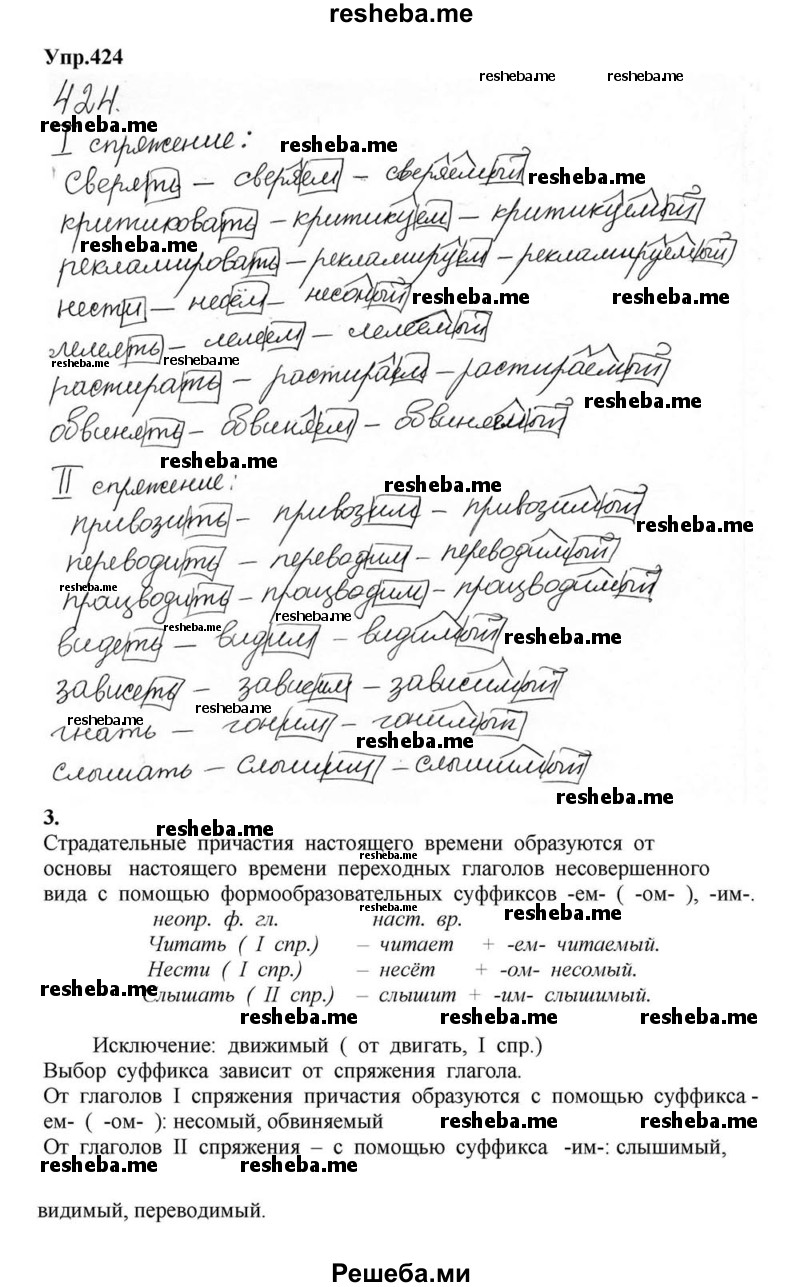 resheba.me
Упр.424
resheba.me resheba.me
424.
resheba.me
I спряжение: resheba.me
сверять – сверяем – сверяемый resheba.me
критиковать – критикуем – критикуемый
resheba.me
рекламировать – рекламируем – рекламируемый
нести – несём – несомый resheba.me resheba.me
лелеять – лелеем – лелеемый
resheba.me resheba.me
растирать – растираем – растираемый
resheba.me
обвинять – обвиняем – обвиняемый
resheba.me
II спряжение: resheba.me
привозить – привозим – привозимый
resheba.me
переводить – переводим – переводимый
resheba.me
производить – производим – производимый
resheba.me resheba.me
видеть – видим – видимый resheba.me
зависеть – зависим – зависимый
resheba.me
resheba.me
гнать – гоним – гонимый
resheba.me
слышать – слышим – слышимый
resheba.me
3.
resheba.me
Страдательные причастия настоящего времени образуются от
resheba.me
основы настоящего времени переходных глаголов несовершенного
вида с помощью формообразовательных суффиксов -ем- ( -ом- ), -им-.
resheba.me resheba.me
неопр. ф. гл. наст. вр.
Читать ( I спр.) – читает + -ем- читаемый.
Нести ( I спр.) – несёт + -ом- несомый.
resheba.me
Слышать ( II спр.) – слышит + -им- слышимый.
resheba.me resheba.me resheba.me
Исключение: движимый ( от двигать, I спр.)
Выбор суффикса зависит от спряжения глагола.
От глаголов I спряжения причастия образуются с помощью суффикса -
ем- ( -ом- ): несомый, обвиняемый resheba.me resheba.me
От глаголов II спряжения – с помощью суффикса -им-: слышимый,
resheba.me resheba.me
видимый, переводимый.
Решеба.ми